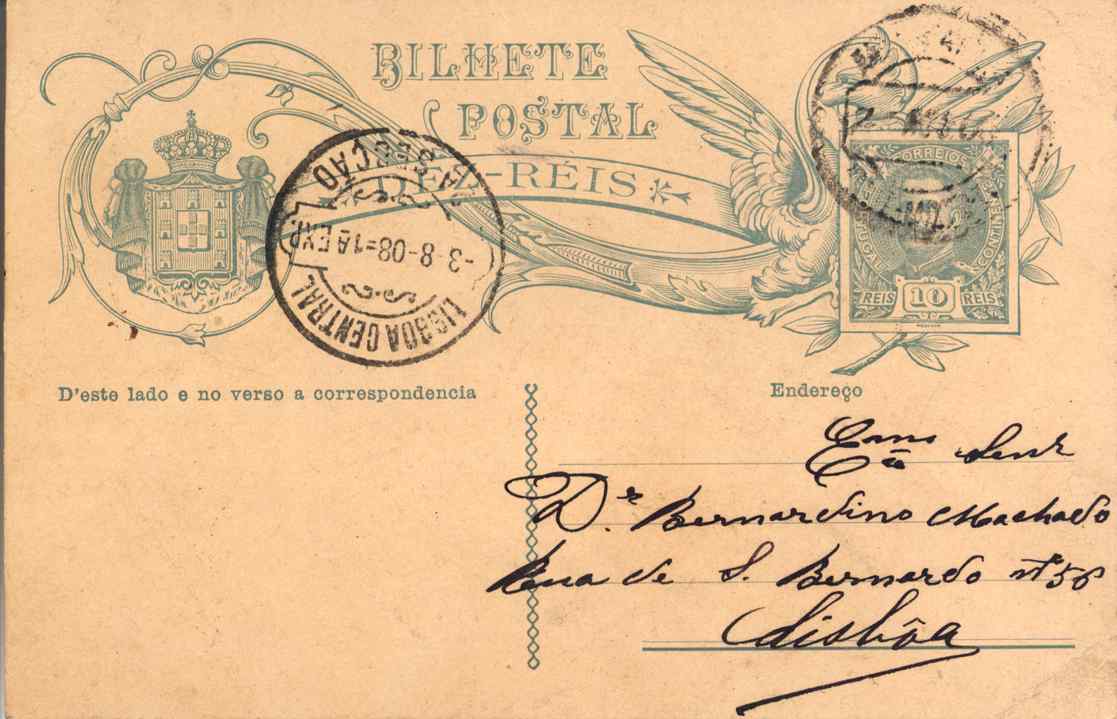 BILHETE
POSTAL
DEZ-RÉIS
CORREIOS
PORTUGAL
CONTINENTE
REIS 10 REIS
SECÇÃO
-3-8-08=1ª EXP.
LISBOA CENTRAL
D'este lado e no verso a correspondencia
Endereço
Exmo Senr
Dr. Bernardino Machado
Rua de S. Bernardo nº 56
Lisbôa